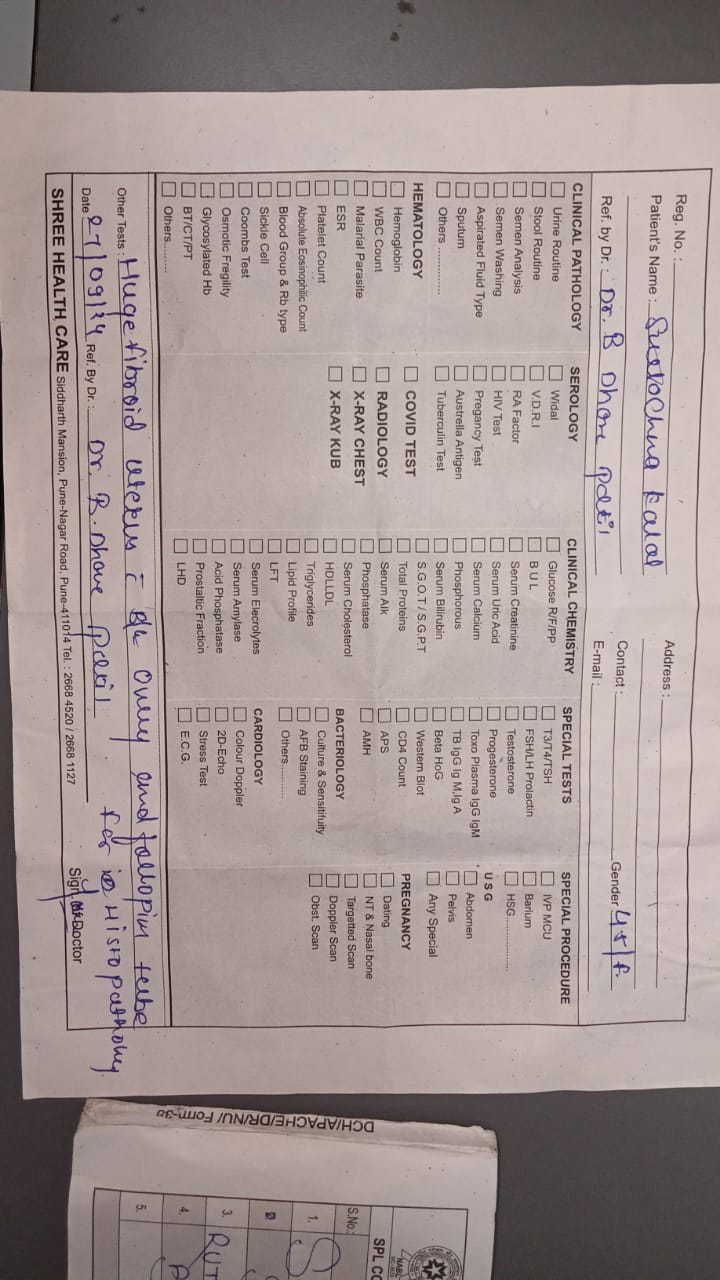 Reg. No. :
Patient's Name : Sulochna Kalal
Address :
Contact :
Gender 45/F.
Ref. by Dr. : Dr. B Dhone patil
E-mail :
CLINICAL PATHOLOGY
Urine Routine
Stool Routine
Semen Analysis
Semen Washing
Aspirated Fluid Type
Sputum
Others ..............
HEMATOLOGY
Hemoglobin
WBC Count
Malarial Parasite
ESR
Platelet Count
Absolute Eosinophilic Count
Blood Group & Rb type
Sickle Cell
Coombs Test
Osmotic Fregility
Glycosylated Hb
BT/CT/PT
Others..........
SEROLOGY
Widal
V.D.R.I
RA Factor
HIV Test
Pregancy Test
Austrella Antigen
Tuberculin Test
COVID TEST
RADIOLOGY
X-RAY CHEST
X-RAY KUB
CLINICAL CHEMISTRY
Glucose R/F/PP
B U L
Serum Creatinine
Serum Uric Acid
Serum Calcium
Phosphorous
Serum Bilirubin
S.G.O.T / S.G.P.T
Total Proteins
Serum Alk
Phosphatase
Serum Cholesterol
HDL/LDL
Triglycerides
Lipid Profile
LFT
Serum Elecrolytes
Serum Amylase
Acid Phosphatase
Prostaltic Fraction
LHD
SPECIAL TESTS
T3/T4/TSH
FSH/LH Prolactin
Testosterone
Progesterone
Toxo Plasma IgG IgM
TB IgG Ig M,Ig A
Beta HoG
Western Blot
CD4 Count
APS
AMH
BACTERIOLOGY
Culture & Sensitifuity
AFB Staining
Others...........
CARDIOLOGY
Colour Doppler
2D-Echo
Stress Test
E.C.G.
SPECIAL PROCEDURE
IVP MCU
Barium
HSG................
U S G
Abdomen
Pelvis
Any Special
PREGNANCY
Dating
NT & Nasal bone
Targetted Scan
Doppler Scan
Obst. Scan
Other Tests : Huge fibroid uterus c̄ B/L Overy and fallopin tube
for Histopathology
Date 27/09/24 Ref. By Dr. : Dr. B. Dhone patil
Sign. of Doctor
SHREE HEALTH CARE Siddharth Mansion, Pune-Nagar Road, Pune-411014 Tel. : 2668 4520 / 2668 1127
DCH/APACHE/DR/NU/ Form-36
SPL CO
S.No.:
1.
3.
4.
5.